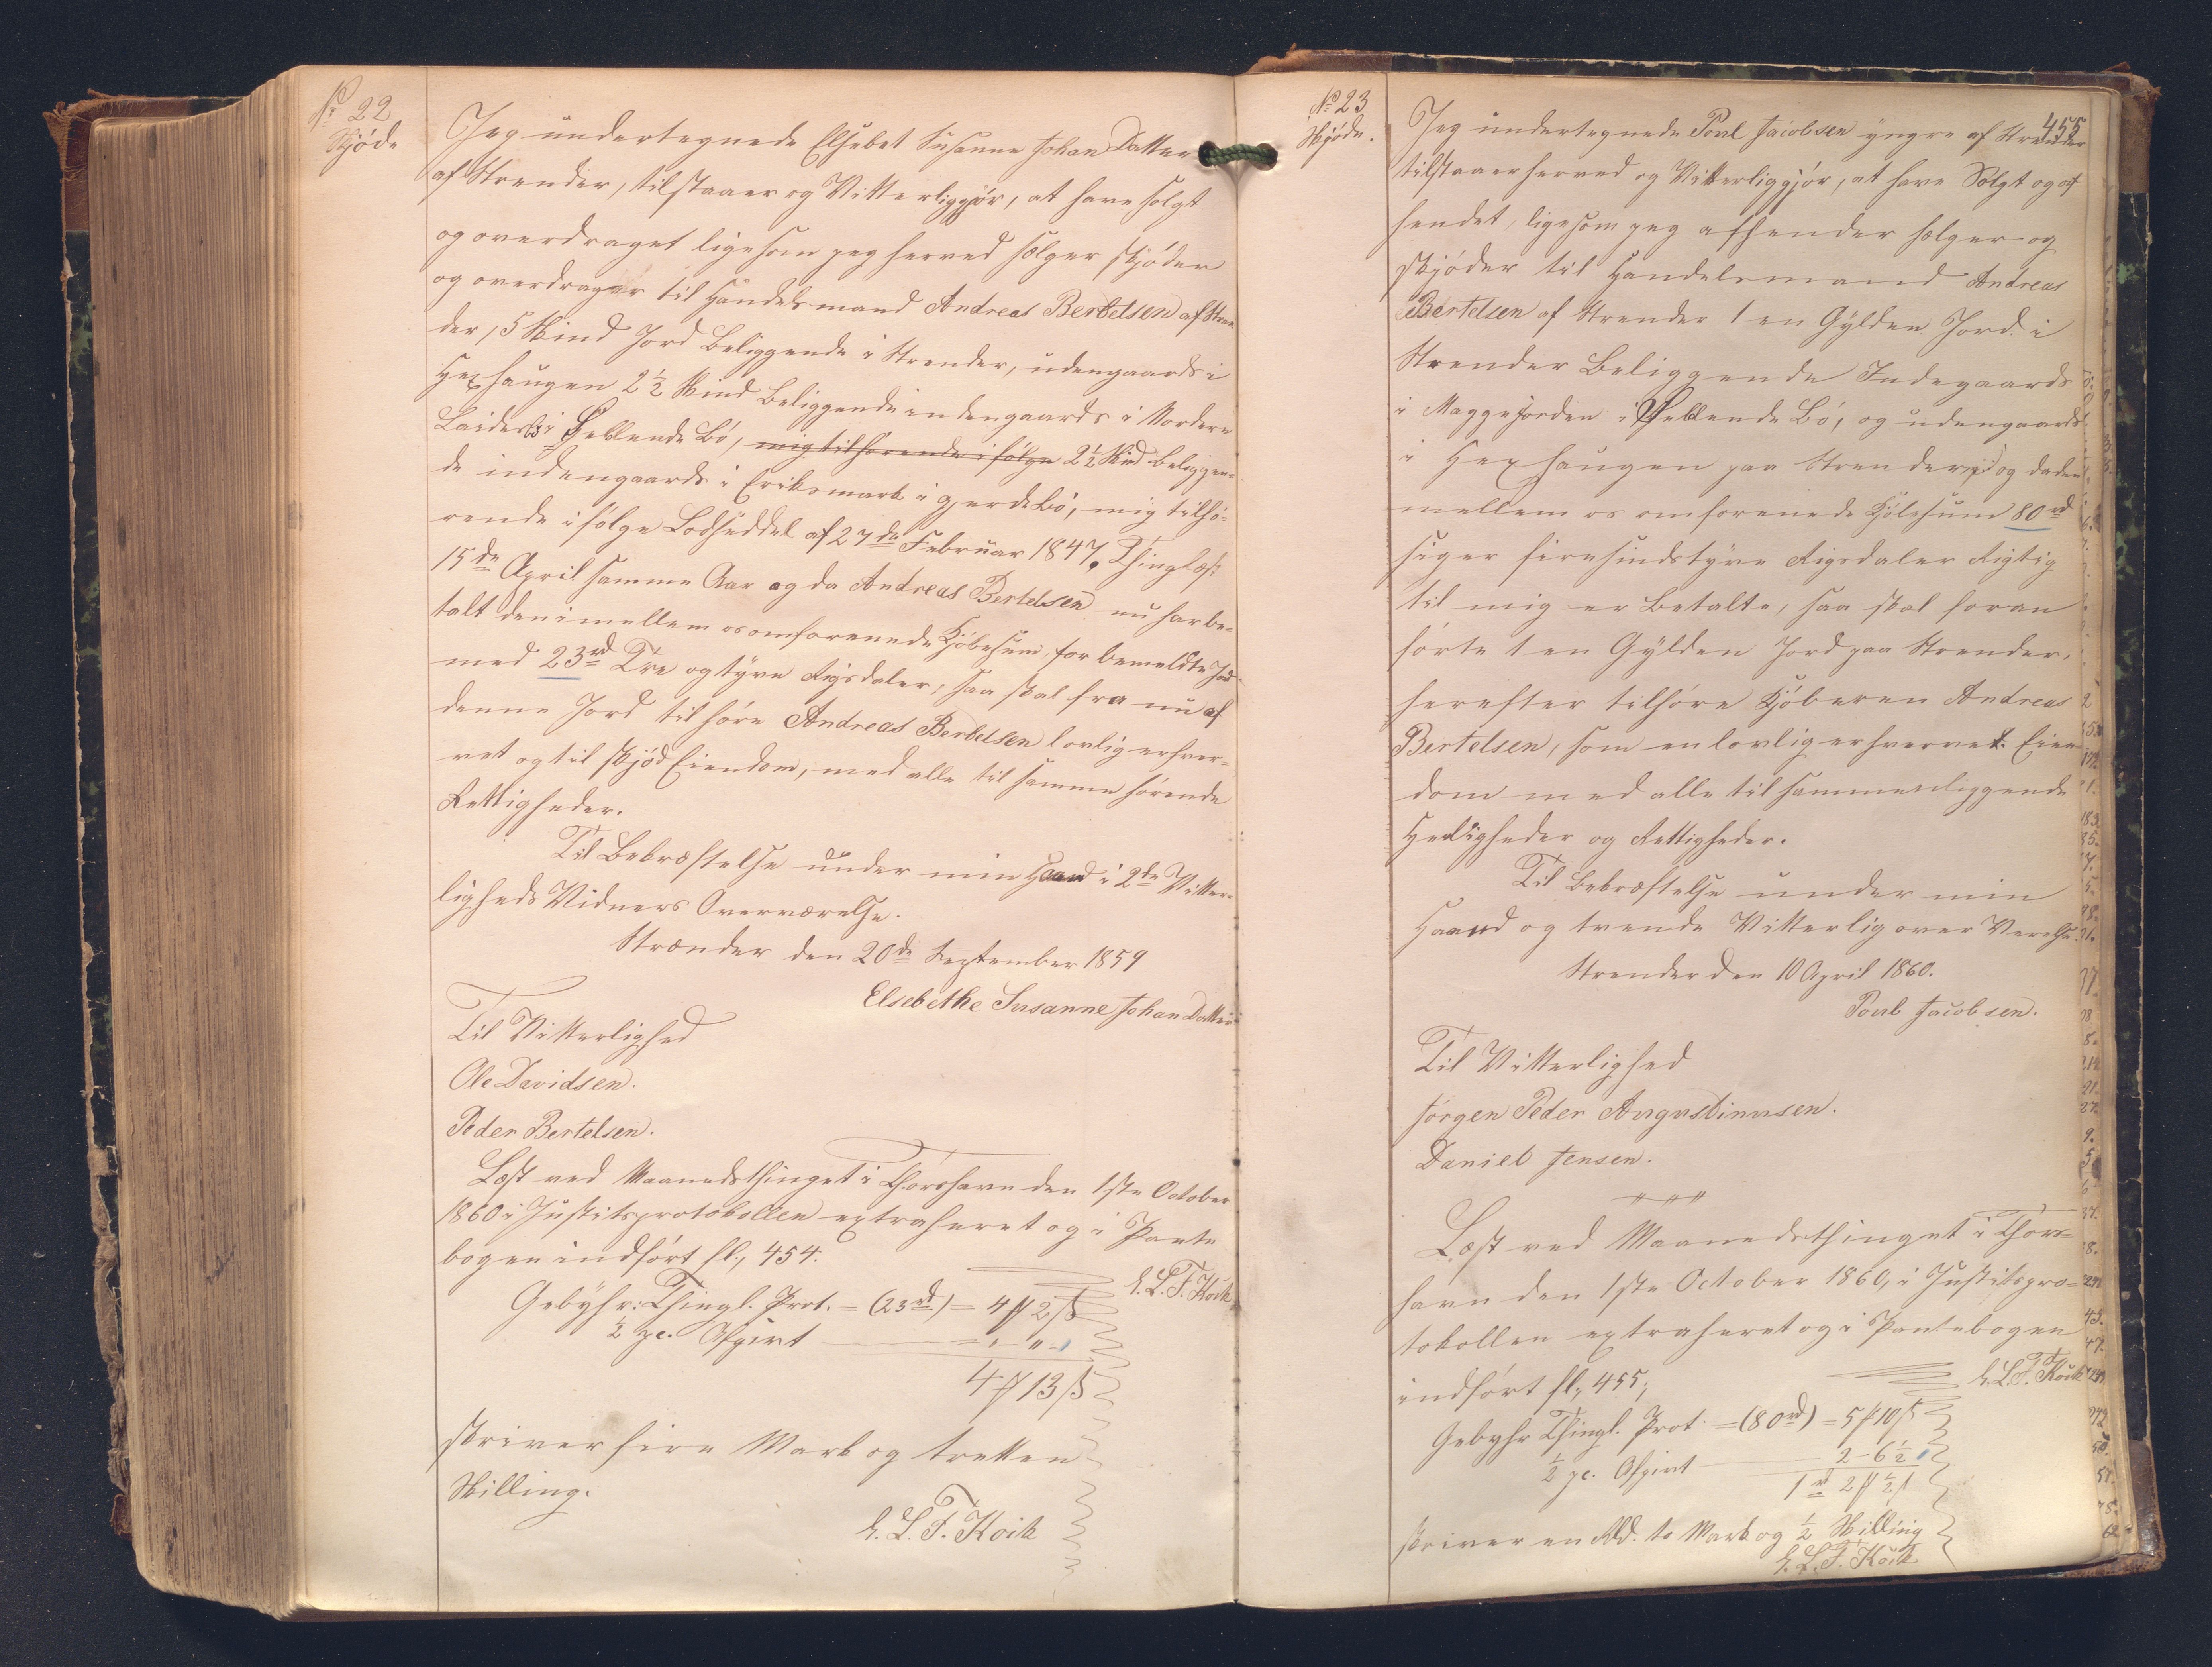 No 22
Skjöde
Jeg undertegnede Elsebet Susanne Johan Datter
af Strender, tilstaaer og Vitterliggjör, at have solgt
og overdraget ligesom jeg herved sælger skjöder
og overdrager til Handelsmand Andreas Bertelsen af Stren
der, 5 Skind Jord beliggende i Strender, udengaards i
Hexhaugen 2½ Skind beliggende indengaards i Nordere
i Sellende Bö, mig tilhörende ifölge 2½ Skind beliggen=
de indengaards i Eriksmark i Gjerdebö, mig tilhö=
rende ifölge Lodseddel af 27de Februar 1847. Thinglæst
15de April samme Aar og da Andreas Bertelsen nu har be=
talt den imellem os omforenede Kjöbesum, for bemeldte Jord
med 23rd Tre og tyve Rigsdaler, saa skal fra nu af
denne Jord tilhöre Andreas Bertelsen lovlig erhver=
vet og til skjöd Eiendom, med alle til samme hörende
Rettigheder.
Til Bekræftelse under min Haand i 2de Vitter=
ligheds Vidners Overværelse.
Strænder den 20de September 1859
Elsebethe Susanne Johan Datter
Til Vitterlighed
Ole Davidsen.
Peder Bertelsen.
Læst ved Maanedsthinget i Thorshavn den 1ste October
1860 i Justitsprotokollen extraheret og i Pante
bogen indfört fl., 454.
H. L. F. Koik
Gebyhr: Thingl. Prot. = (23rd) = 4 ß 2 ß
½ pc. Afgivt
4 ß 13 ß
skriver fire Mark og tretten
Skilling.
H. L. F. Koik
No 23
Skjöde.
455
Jeg undertegnede Poul Jacobsen yngre af Strender
tilstaaer herved og Vitterliggjör, at have Solgt og af
hendet, ligesom jeg afhender sælger og
skjöder til Handelsmand Andreas
Bertelsen af Strender 1 en Gylden Jord i
Strender Beliggende Indegaards
i Maggejorden i Sellende Bö, og udengaards
i Hexhaugen paa Strender, og da den
mellem os omforenede Kjöbesum 80rd
siger firesindstyve Rigsdaler Rigtig
til mig er Betalte, saa skal foran
förte 1 en Gylden Jord paa Strender,
herefter tilhöre Kjöberen Andreas
Bertelsen, som en lovlig erhvervet Eien=
dom med alle til sammenliggende
Herligheder og Rettigheder.
Til Bekræftelse under min
Haand og tvende Vitterlig over Verelse
Strender den 10 April 1860.
Poul Jacobsen.
Til Vitterlighed
Jörgen Peder Augustinusen.
Daniel Jensen.
Læst ved Maanedsthinget i Thors=
havn den 1ste October 1860, i Justitspro=
tokollen extraheret og i Pantebogen
indfört fl, 455,
H. L. F. Koik
Gebyhr Thingl. Prot. = (80rd) = 5 ß 10 ß
½ pc. Afgivt 2 - 6½
1rd 2 ß ½ ß
skriver en Rbd. to Mark og ½ Skilling
H. L. F. Koik